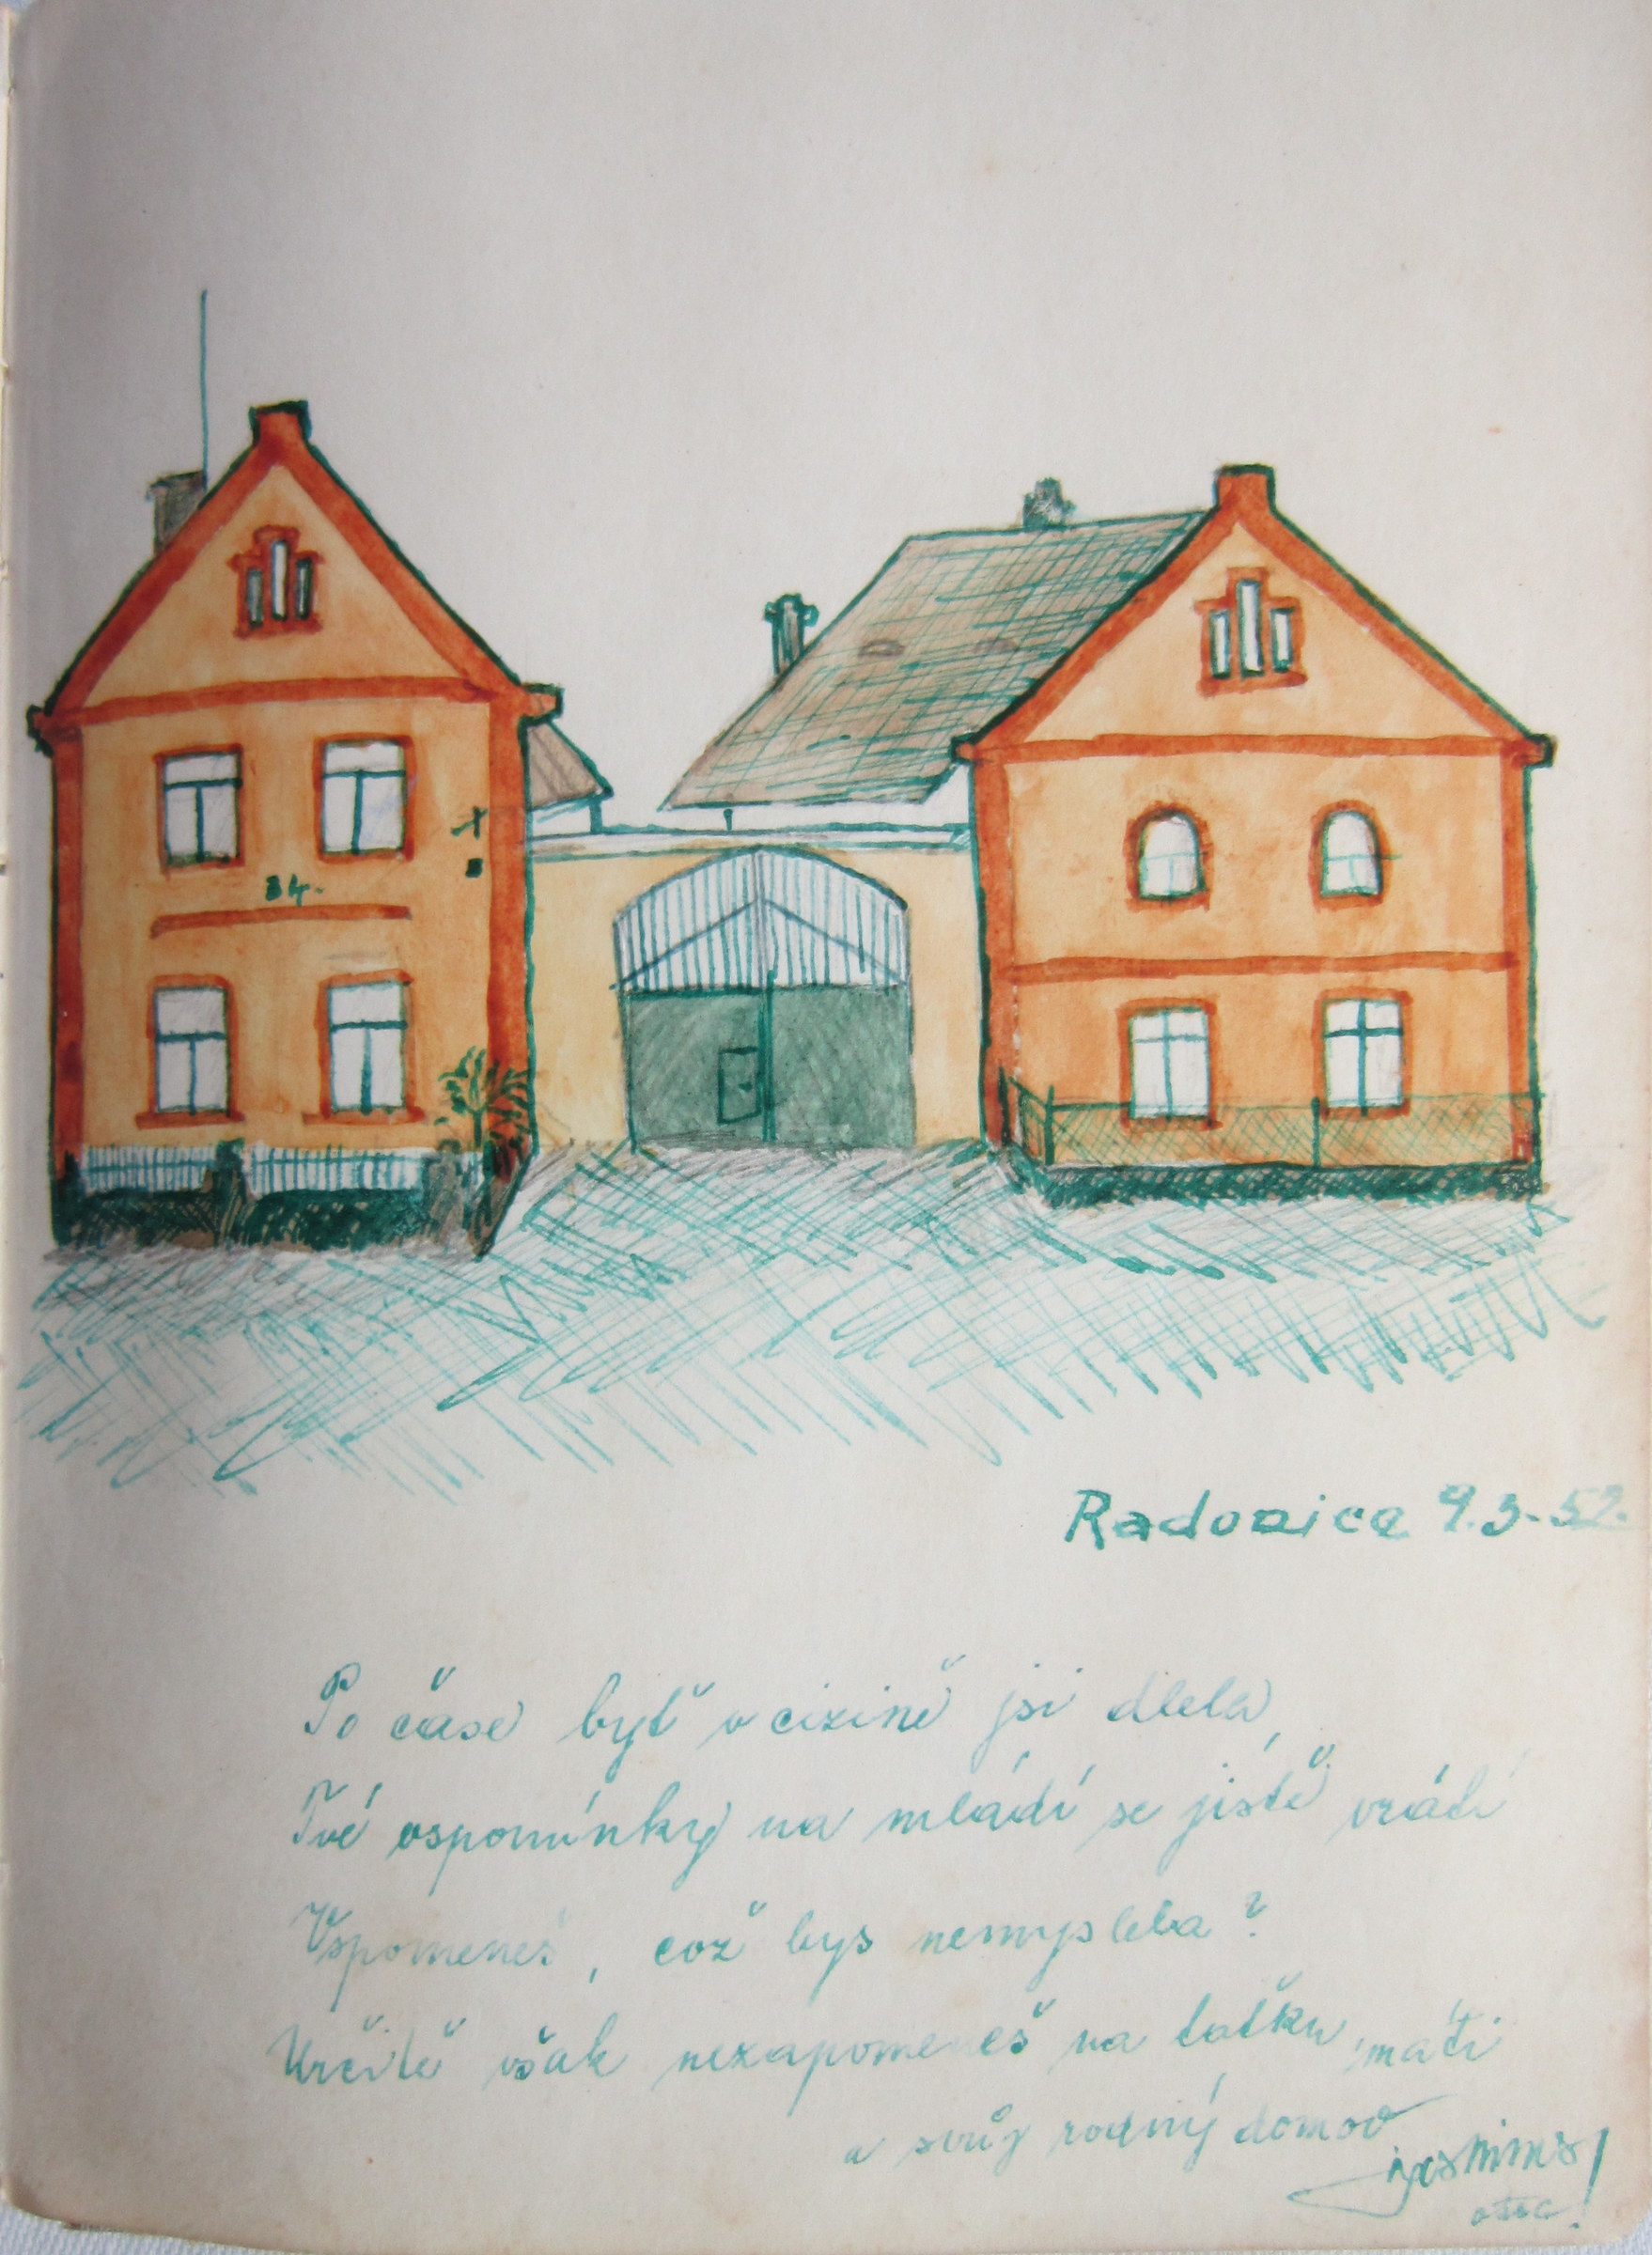 34.
Radonice 9.3.52.
Po čase byť v cizině jsi dlela,
Tvé vspomínky na mládí se jistě vrátí
Vspomeneš, což bys nemyslela?
Určitě však nezapomeneš na taťku, máti
a svůj rodný domov
otec!